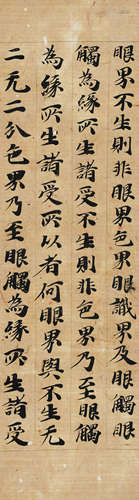 眼界不生則非眼界眼識界及眼觸眼
觸為緣所生諸受不生則非色界乃至眼觸
為緣所生諸受所以者何眼界與不生无
二无二分色界乃至眼觸為緣所生諸受